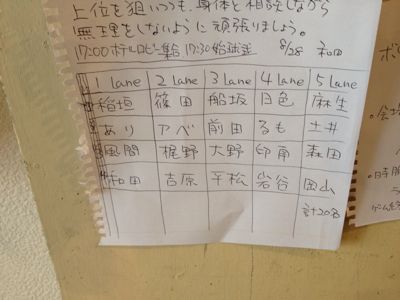 上位を狙いつつも、身体と相談しながら
無理をしないように頑張りましょう。
17:00 ホテルロビー集合 17:30 始球式 8/28 和田
1 Lane 2 Lane 3 Lane 4 Lane 5 Lane
稲垣 篠田 船坂 日色 麻生
あり アベ 前田 るも 土井
風間 梶野 大野 印南 森田
和田 吉原 平松 岩谷 岡山
計20名
。会場